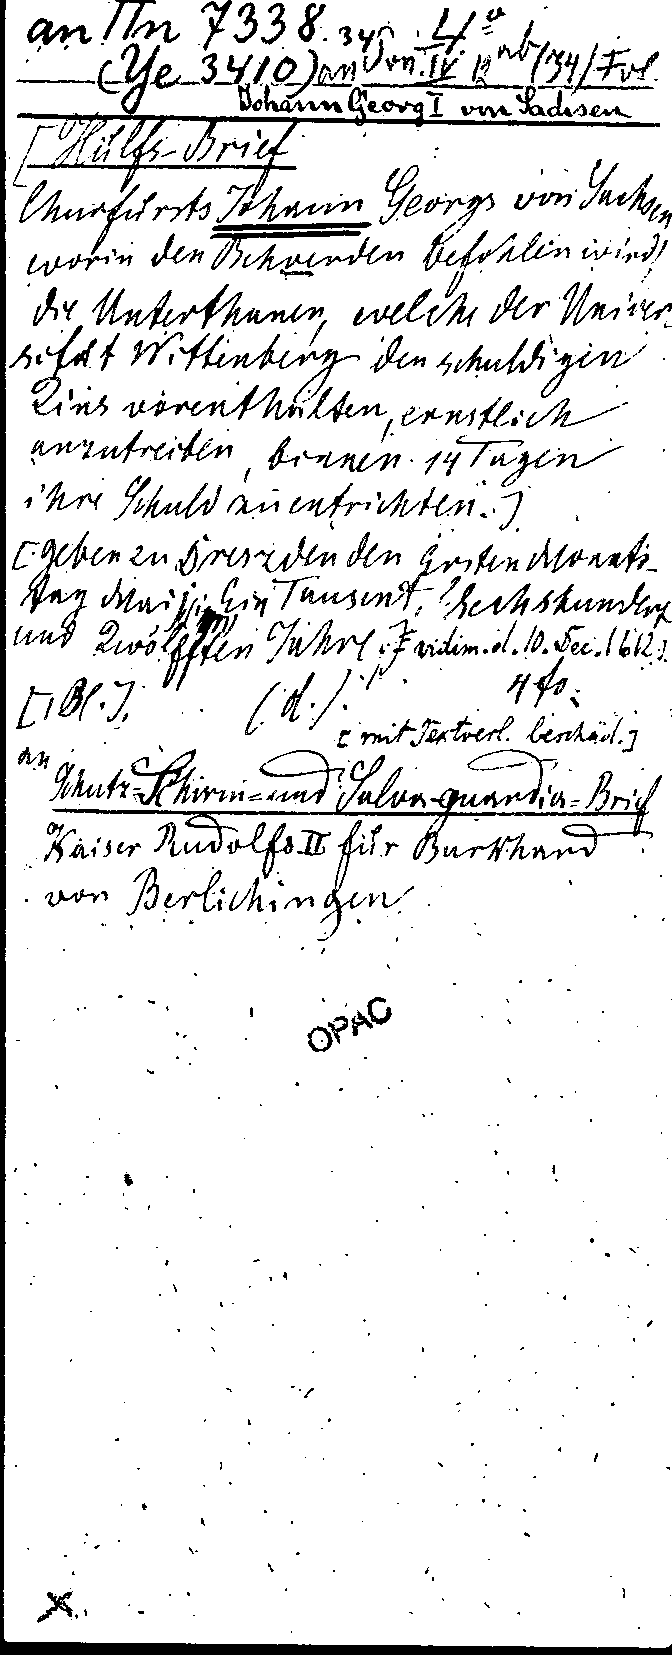 an IIn 7338. 34 4°
(Ye 3410) an Von. IV 12 ab (34) Fol.
Johann Georg I von Sachsen
[Hülfs-Brief
Churfürsts Johann Georgs von Sachsen
worin den Behoerden befohlen wird,
die Unterthanen, welche der Univer-
sität Wittenberg den schuldigen
Zins vorenthalten, ernstlich
anzutreiben, binnen 14 Tagen
ihre Schuld zu entrichten.]
[: geben zu Dreszden den Ersten Monats-
tag Maij, Ein Tausent, Sechshundert
und Zwölfften Jahre. vidim. d. 10. Dec. 1612.]
[1 Bl.], (d.). 4 fo.
[mit Textverl. beschäd.]
an
Schutz-Schirm- und Salva-guardia-Brief
Kaiser Rudolfs II für Burkhard
von Berlichingen
OPAC
X